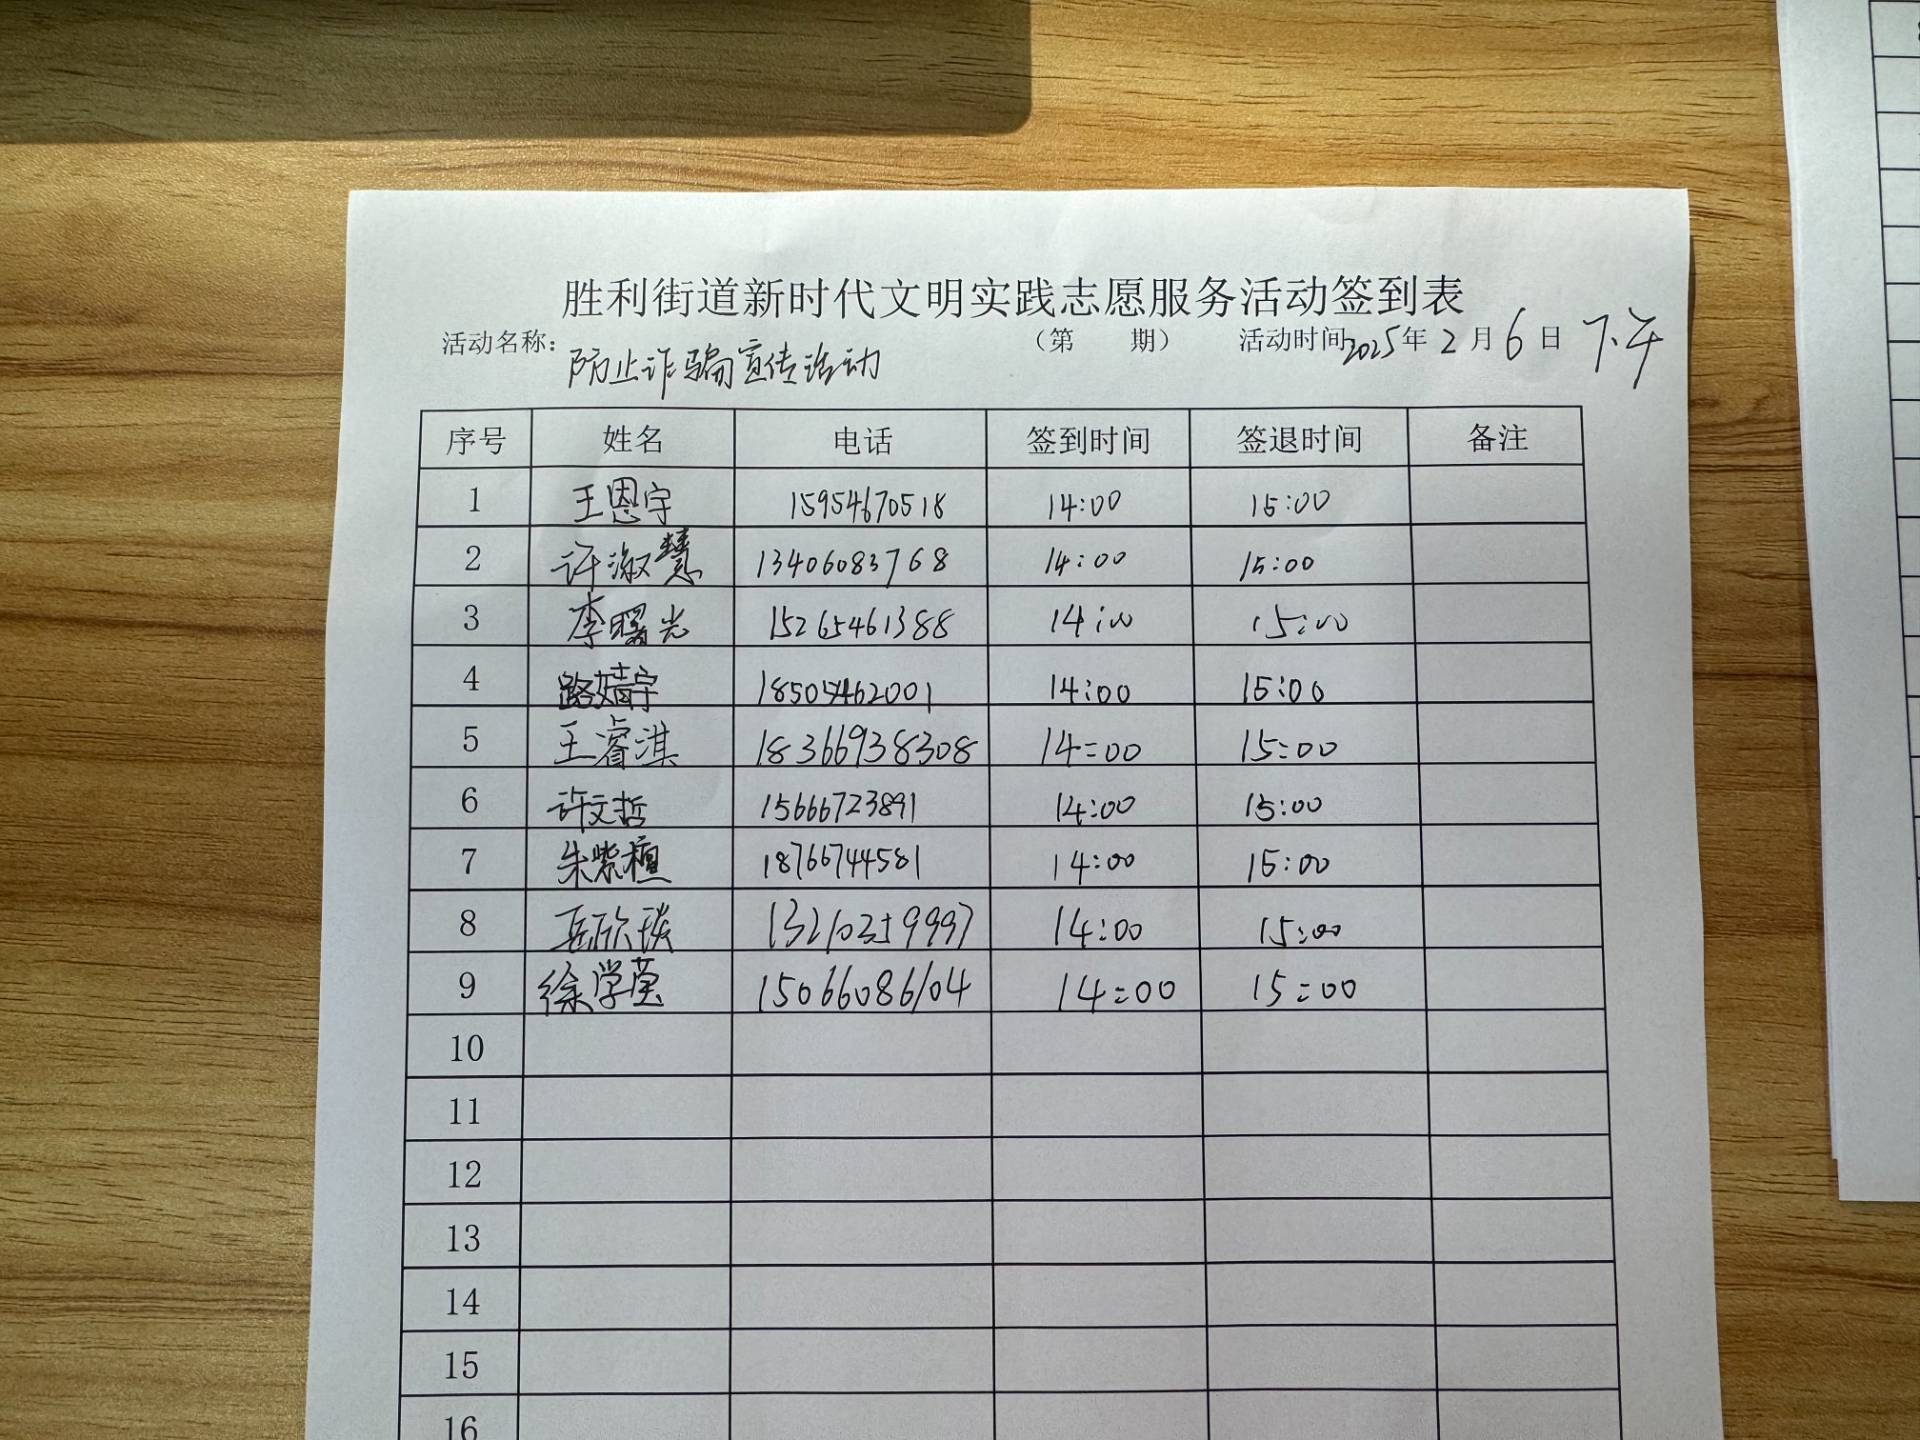 胜利街道新时代文明实践志愿服务活动签到表
活动名称：防止诈骗宣传活动 （第 期） 活动时间2025年2月6日 下午
序号 姓名 电话 签到时间 签退时间 备注
1 王恩宇 15954670518 14:00 15:00
2 许淑慧 13406083768 14:00 15:00
3 李曙光 15265461388 14:00 15:00
4 路婧宇 18505462001 14:00 15:00
5 王睿淇 18366938308 14:00 15:00
6 许文哲 15666723891 14:00 15:00
7 朱紫檀 18766744581 14:00 15:00
8 岳欣琰 13210359997 14:00 15:00
9 徐学莹 15066086104 14:00 15:00
10
11
12
13
14
15
16